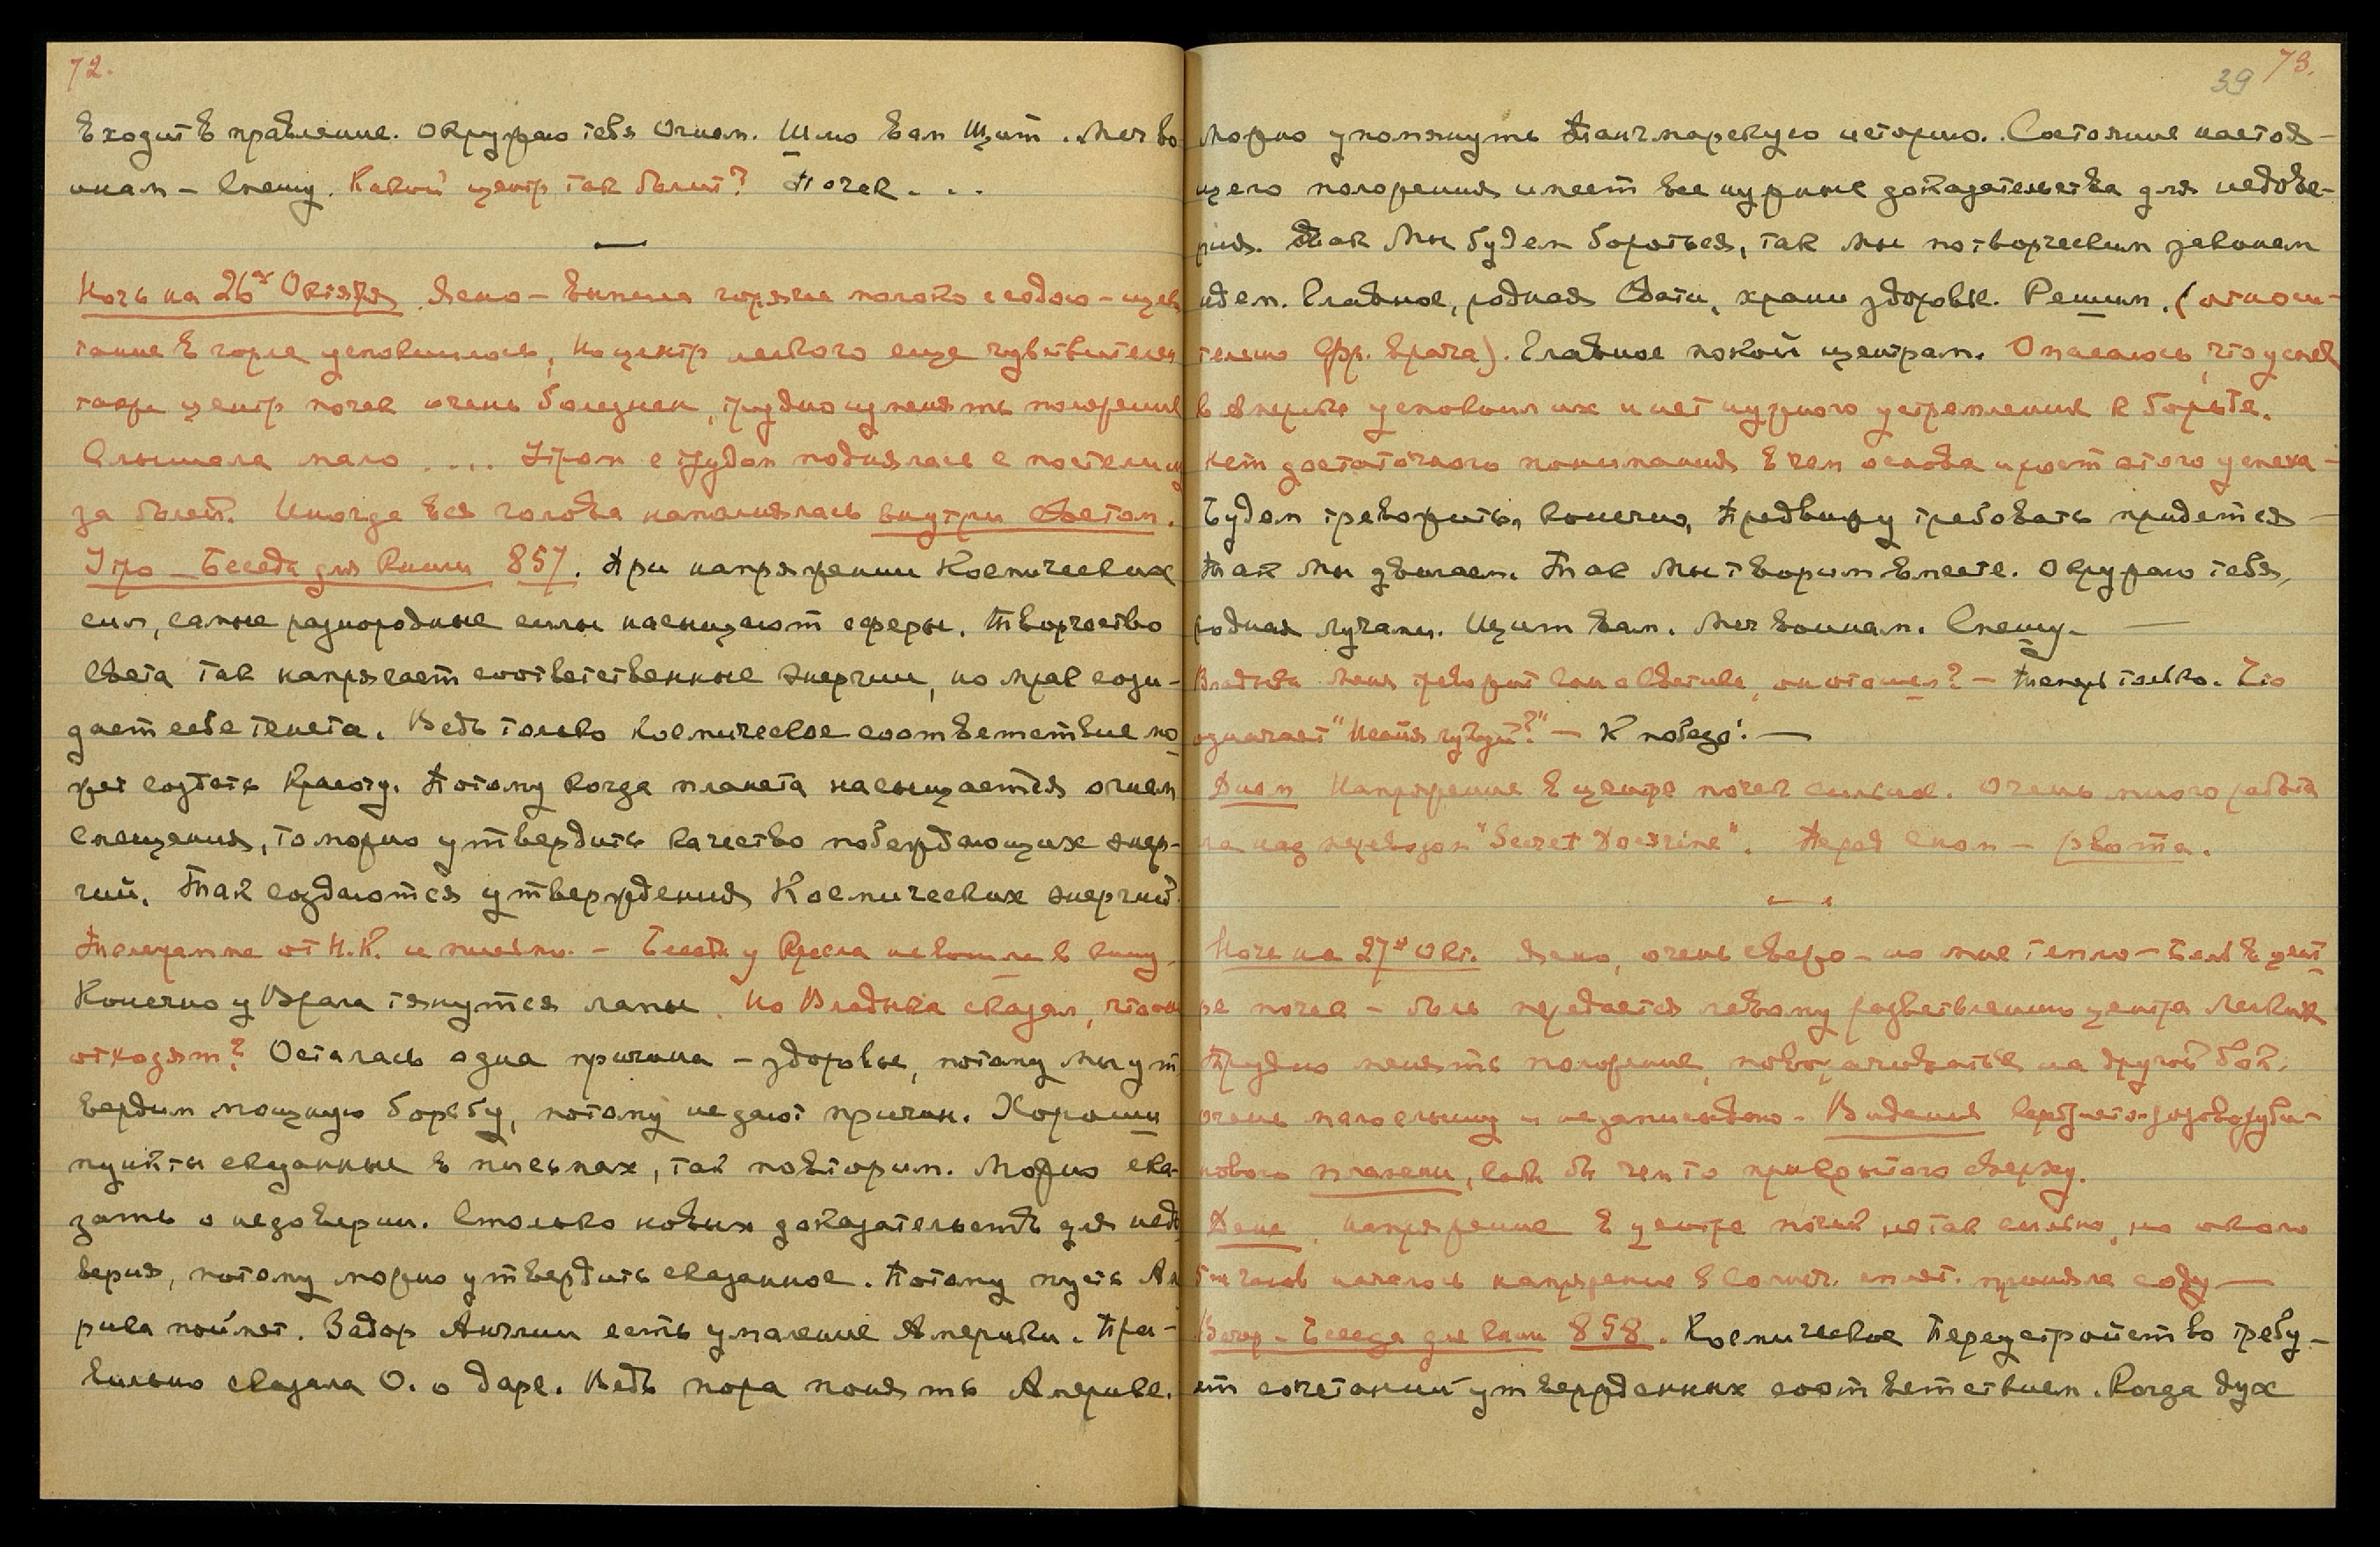 72.
входит в правление. Окружаю тебя Огнем. Шлю Вам Щит. Меч во-
инам – Спешу. Какой центр так болит? Почек...
Ночь на 26ое Октября Ясно – Выпила горячее молоко с содою – щек
тание в горле успокоилось, но центр легкого еще чувствителен
также центр почек очень болезнен, трудно изменять положение
Слышала мало.... Утром с трудом поднялась с постели из
за болей. Иногда вся голова наполнялась внутри Светом.
Утро – Беседа для Книги 857. При напряжении Космических
сил, самые разнородные силы насыщают сферы. Творчество
Света так напрягает соответственные энергии, но мрак созы-
дает себе тенета. Ведь только Космическое соответствие мо-
жет создать Красоту. Потому когда планета насыщается огнем
смещения, то можно утвердить качество побеждающих энер-
гий. Так создаются утверждения Космических энергий.
Телеграмма от Н.К. и письмо. – Беседа у Кресла не вошли в книгу.
Конечно у Врага тянутся лапы. Но Владыка сказал, что они
отходят? Осталась одна причина – здоровье, потому мы ут
вердим мощную борьбу, потому не дают причин. Хороши
пункты сказанные в письмах, так повторим. Можно ска-
зать о недоверии. Столько новых доказательств для недо
верия, потому можно утвердить сказанное. Потому пусть Ам
рика поймет. Задор Англии есть умаление Америки. Пра-
вильно сказала О. о даре. Ведь пора понять Америке.
39 73.
можно упомянуть Танжмарскую историю. Состояние настоя-
щего положения имеет все нужные доказательства для недове-
рия. Так Мы будем бороться, так мы по творческим законам
идем. Главное, родная Свати, храни здоровье. Решим. (относи-
тельно Фр. Врача). Главное покой центрам. Опасаюсь, что успех
в Америке успокоил их и нет нужного устремления к борьбе.
Нет достаточного понимания в чем основа и рост этого успеха –
Будем тревожить, конечно, Предвижу требовать придется –
Так Мы двигаем. Так Мы творим вместе. Окружаю тебя,
родная лучами. Щит Вам. Меч Воинам. Спешу –
Владыка меня тревожит сон о Светике, он отошел? – Теперь только. Что
означает "Исайя лучезр?" – К победе! –
Днем Напряжение в центре почек сильное. Очень много работа
ла над переводом "Secret Doctrine". Перед сном – рвота.
Ночь на 27ое Окт. Ясно, очень свежо – но мне тепло – Боль в цент
ре почек – боль передается левому разветвлению центра Легких
Трудно менять положение, поворачиваться на другой бок.
очень мало слышу и не записываю – Видения серебристо-розово-руби-
нового пламени, как бы чем то прикрытого сверху.
День. Напряжение в центре почек не так сильно, но около
6ти часов началось напряжение в Солнеч. сплет. приняла соду –
Вечер – Беседа для книги 858. Космическое Переустройство требу-
ет сочетаний утвержденных соответствием. Когда дух